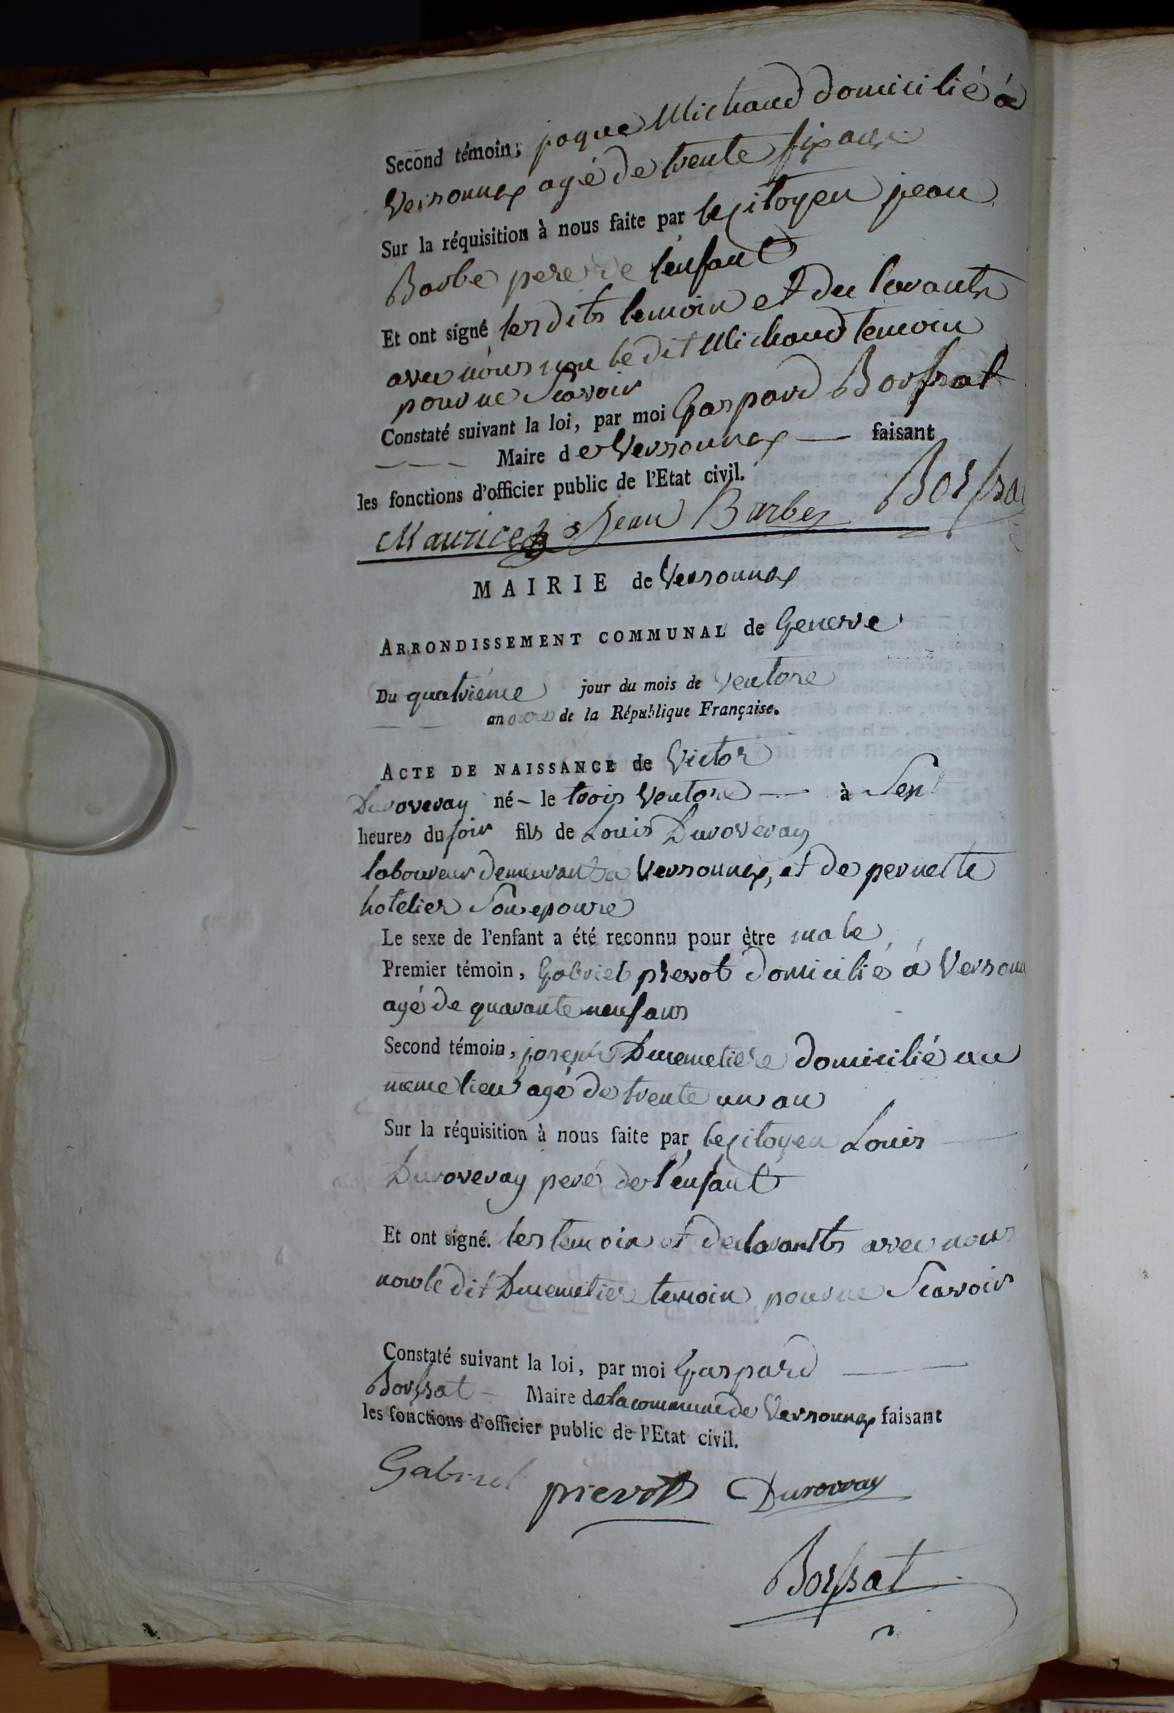 Second témoin, jaque Michaud domicilié à
Versonnex agé de trente six ans
Sur la réquisition à nous faite par le citoyen jean
Barbe pere de l'enfant
Et ont signé lesdits temoin et declarants
avec nous non le dit Michaud temoin
pour ne Scavoir
Constaté suivant la loi, par moi Gaspard Borssat
Maire de Versonnex faisant
les fonctions d'officier public de l'Etat civil.
Maurice Jean Barbe Borssat
MAIRIE de Versonnex
ARRONDISSEMENT COMMUNAL de Geneve
Du quatrieme jour du mois de Ventose
an onze de la République Française.
ACTE DE NAISSANCE de Victor
Duroveray né le trois Ventose à Sept
heures du soir fils de Louis Duroveray
laboureur demeurant à Versonnex, et de pernette
hotelier Son epouse
Le sexe de l'enfant a été reconnu pour être male
Premier témoin, Gabriel prevot domicilié à Versonn
agé de quarante neuf ans
Second témoin, joseph Ducemetiere domicilié au
meme lieu agé de trente un an
Sur la réquisition à nous faite par le citoyen Louis
Duroveray pere de l'enfant
Et ont signé. les temoin et declarants avec nous
non le dit Ducemetiere temoin pour ne Scavoir
Constaté suivant la loi, par moi Gaspard
Borssat Maire de la commune de Versonnex faisant
les fonctions d'officier public de l'Etat civil.
Gabriel prevot Duroveray
Borssat